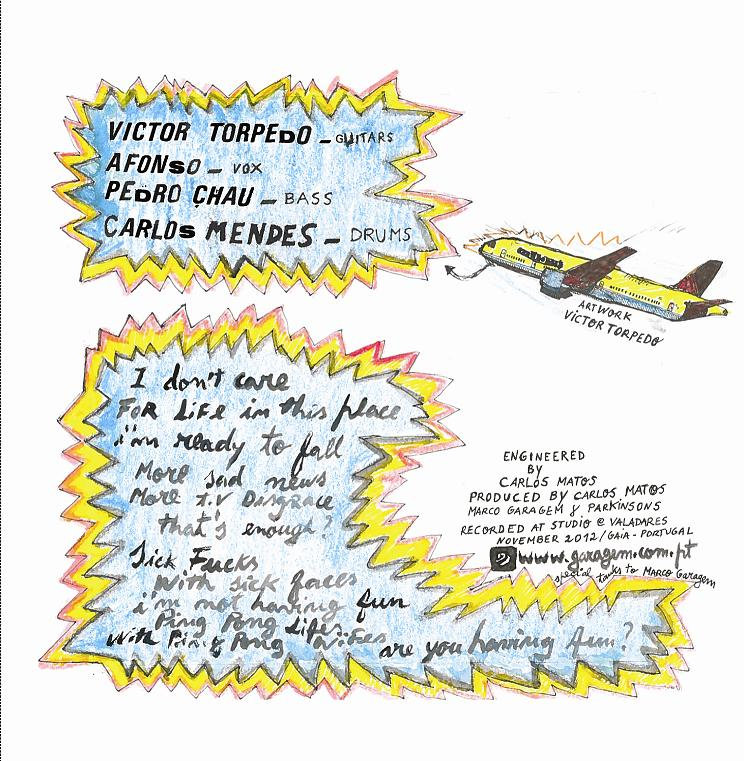 VICTOR TORPEDO - GUITARS
AFONSO - VOX
PEDRO CHAU - BASS
CARLOS MENDES - DRUMS
ARTWORK
VICTOR TORPEDO
I don't care
FOR LiFE in this place
i'm ready to fall
More sad news
More T.V DISGRACE
that's enough?
Sick Fucks
With sick faces
i'm not having fun
Ping Pong Lifes
With Ping Pong are you having fun?
ENGINEERED
BY
CARLOS MATOS
PRODUCED BY CARLOS MATOS
MARCO GARAGEM & PARKINSONS
RECORDED AT STUDIO @ VALADARES
NOVEMBER 2012/GAIA - PORTUGAL
www.garagem.com.pt
special tanks to MARCO Garagem